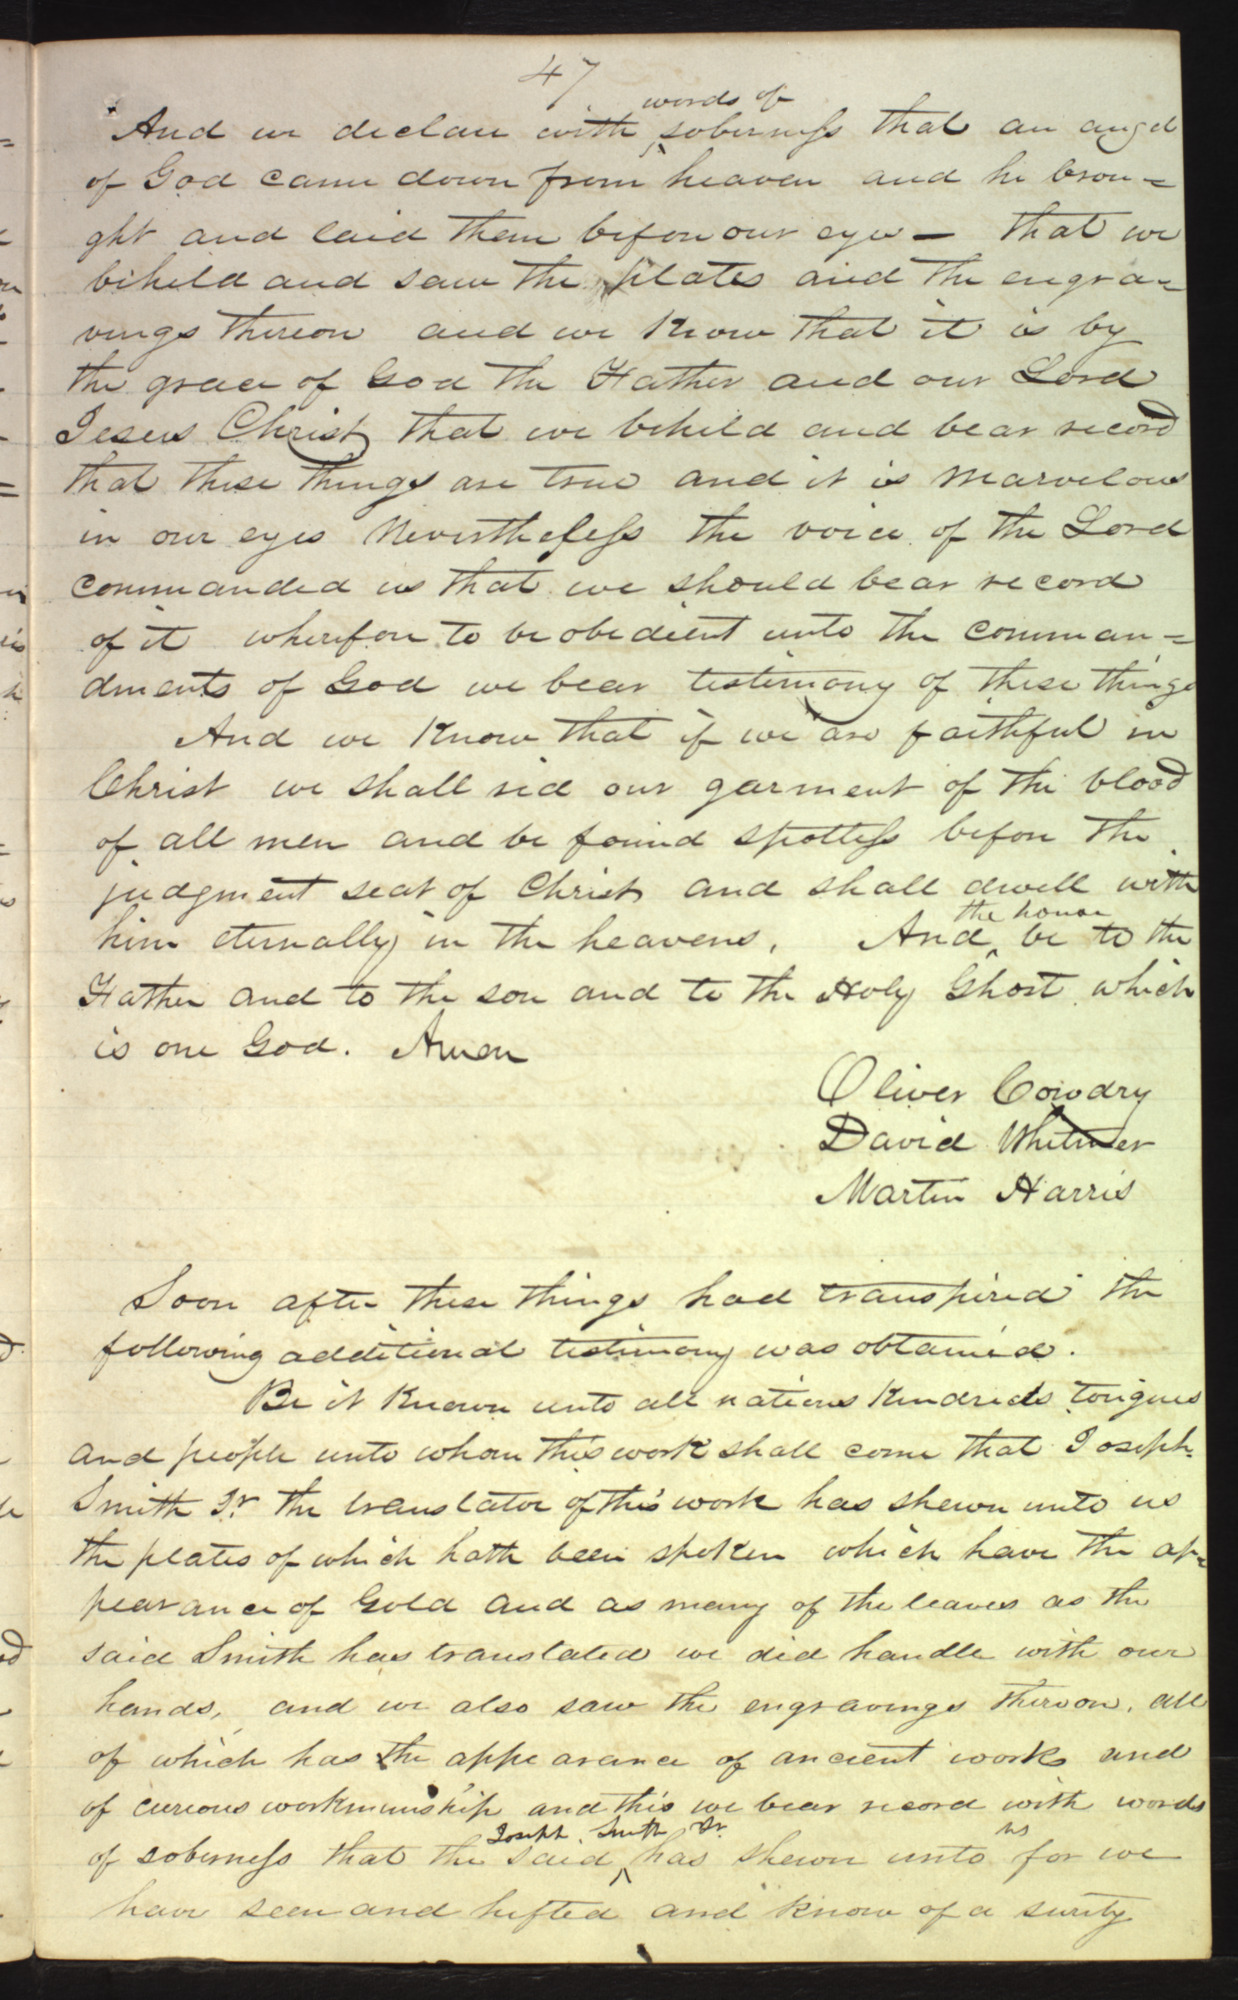 47
words of
And we declare with ^ soberness that an angel
of God came down from heaven and he brou=
ght and laid them before our eyes — that we
beheld and saw the plates and the engra=
vings thereon and we know that it is by
the grace of God the Father and our Lord
Jesus Christ that we beheld and bear record
that these things are true and it is marvelous
in our eyes Nevertheless the voice of the Lord
commanded us that we should bear record
of it wherefore to be obedient unto the comman=
dments of God we bear testimony of these things
And we know that if we are faithful in
Christ we shall rid our garment of the blood
of all men and be found spotless before the
judgment seat of Christ and shall dwell with
the honor
him eternally in the heavens. And ^ be to the
Father and to the son and to the Holy Ghost which
is one God. Amen
Oliver Cowdry
David Whitmer
Martin Harris
Soon after these things had transpired the
following additional testimony was obtained.
Be it known unto all nations kindreds tongues
and people unto whom this work shall come that Joseph
Smith Jr. the translator of this work has shewn unto us
the plates of which hath been spoken which have the ap=
pearance of Gold and as many of the leaves as the
said Smith has translated we did handle with our
hands, and we also saw the engravings thereon. all
of which has the appearance of ancient work and
of curious workmanship and this we bear record with words
Joseph Smith Jr. us
of soberness that the said ^ has shewn unto for we
have seen and hefted and know of a surity